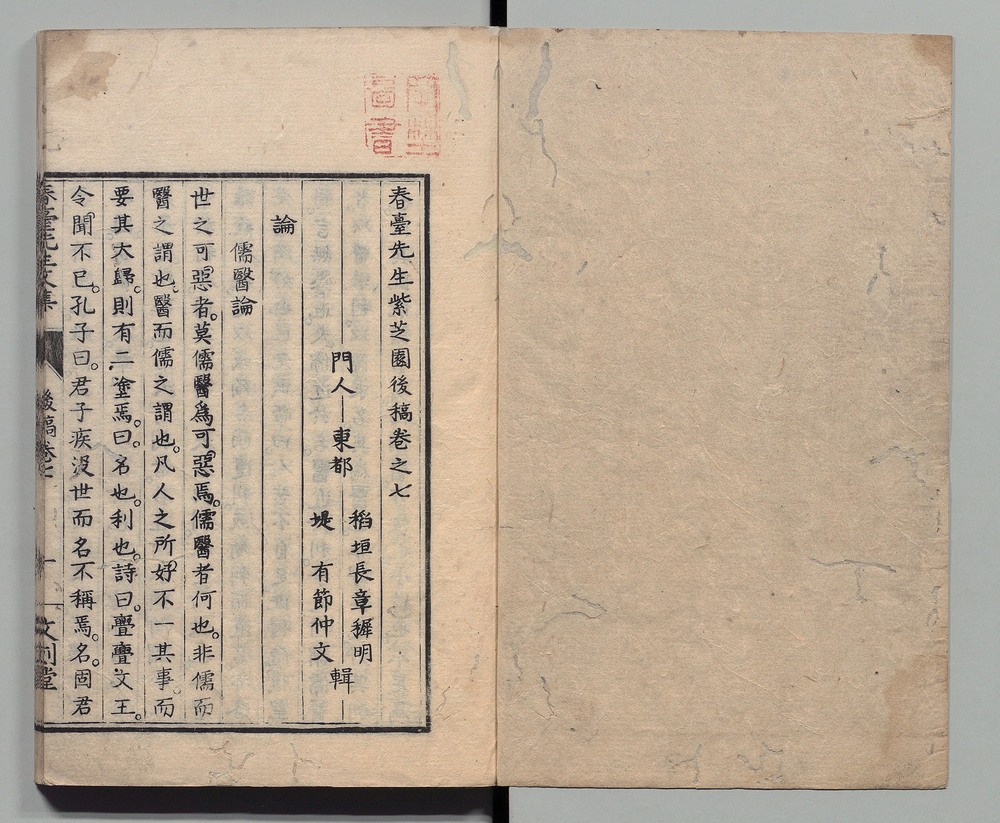 春臺先生紫芝園後稿卷之七
門人 東都 稻垣長章穉明
堤有節仲文 輯
論
儒醫論
世之可惡者。莫儒醫爲可惡焉。儒醫者何也。非儒而
醫之謂也。醫而儒之謂也。凡人之所好不一其事。而
要其大歸。則有二塗焉。曰。名也。利也。詩曰。亹亹文王。
令聞不已。孔子曰。君子疾沒世而名不稱焉。名。固君
春臺先生文集 後稿卷七 一